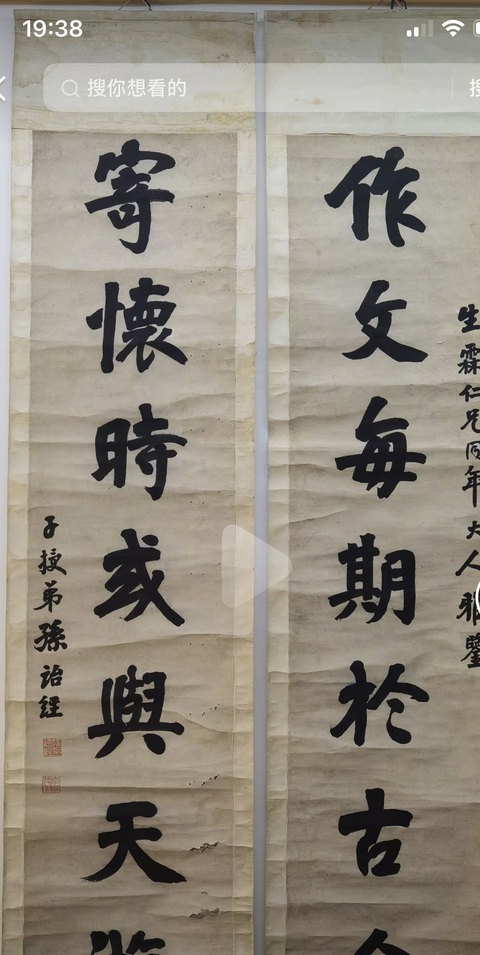 19:38
搜你想看的
搜
生霖仁兄同年大人雅鑒
作文每期於古
寄懷時或與天
子授弟孫詒經